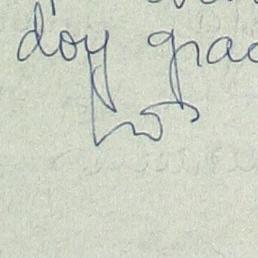 doy grac